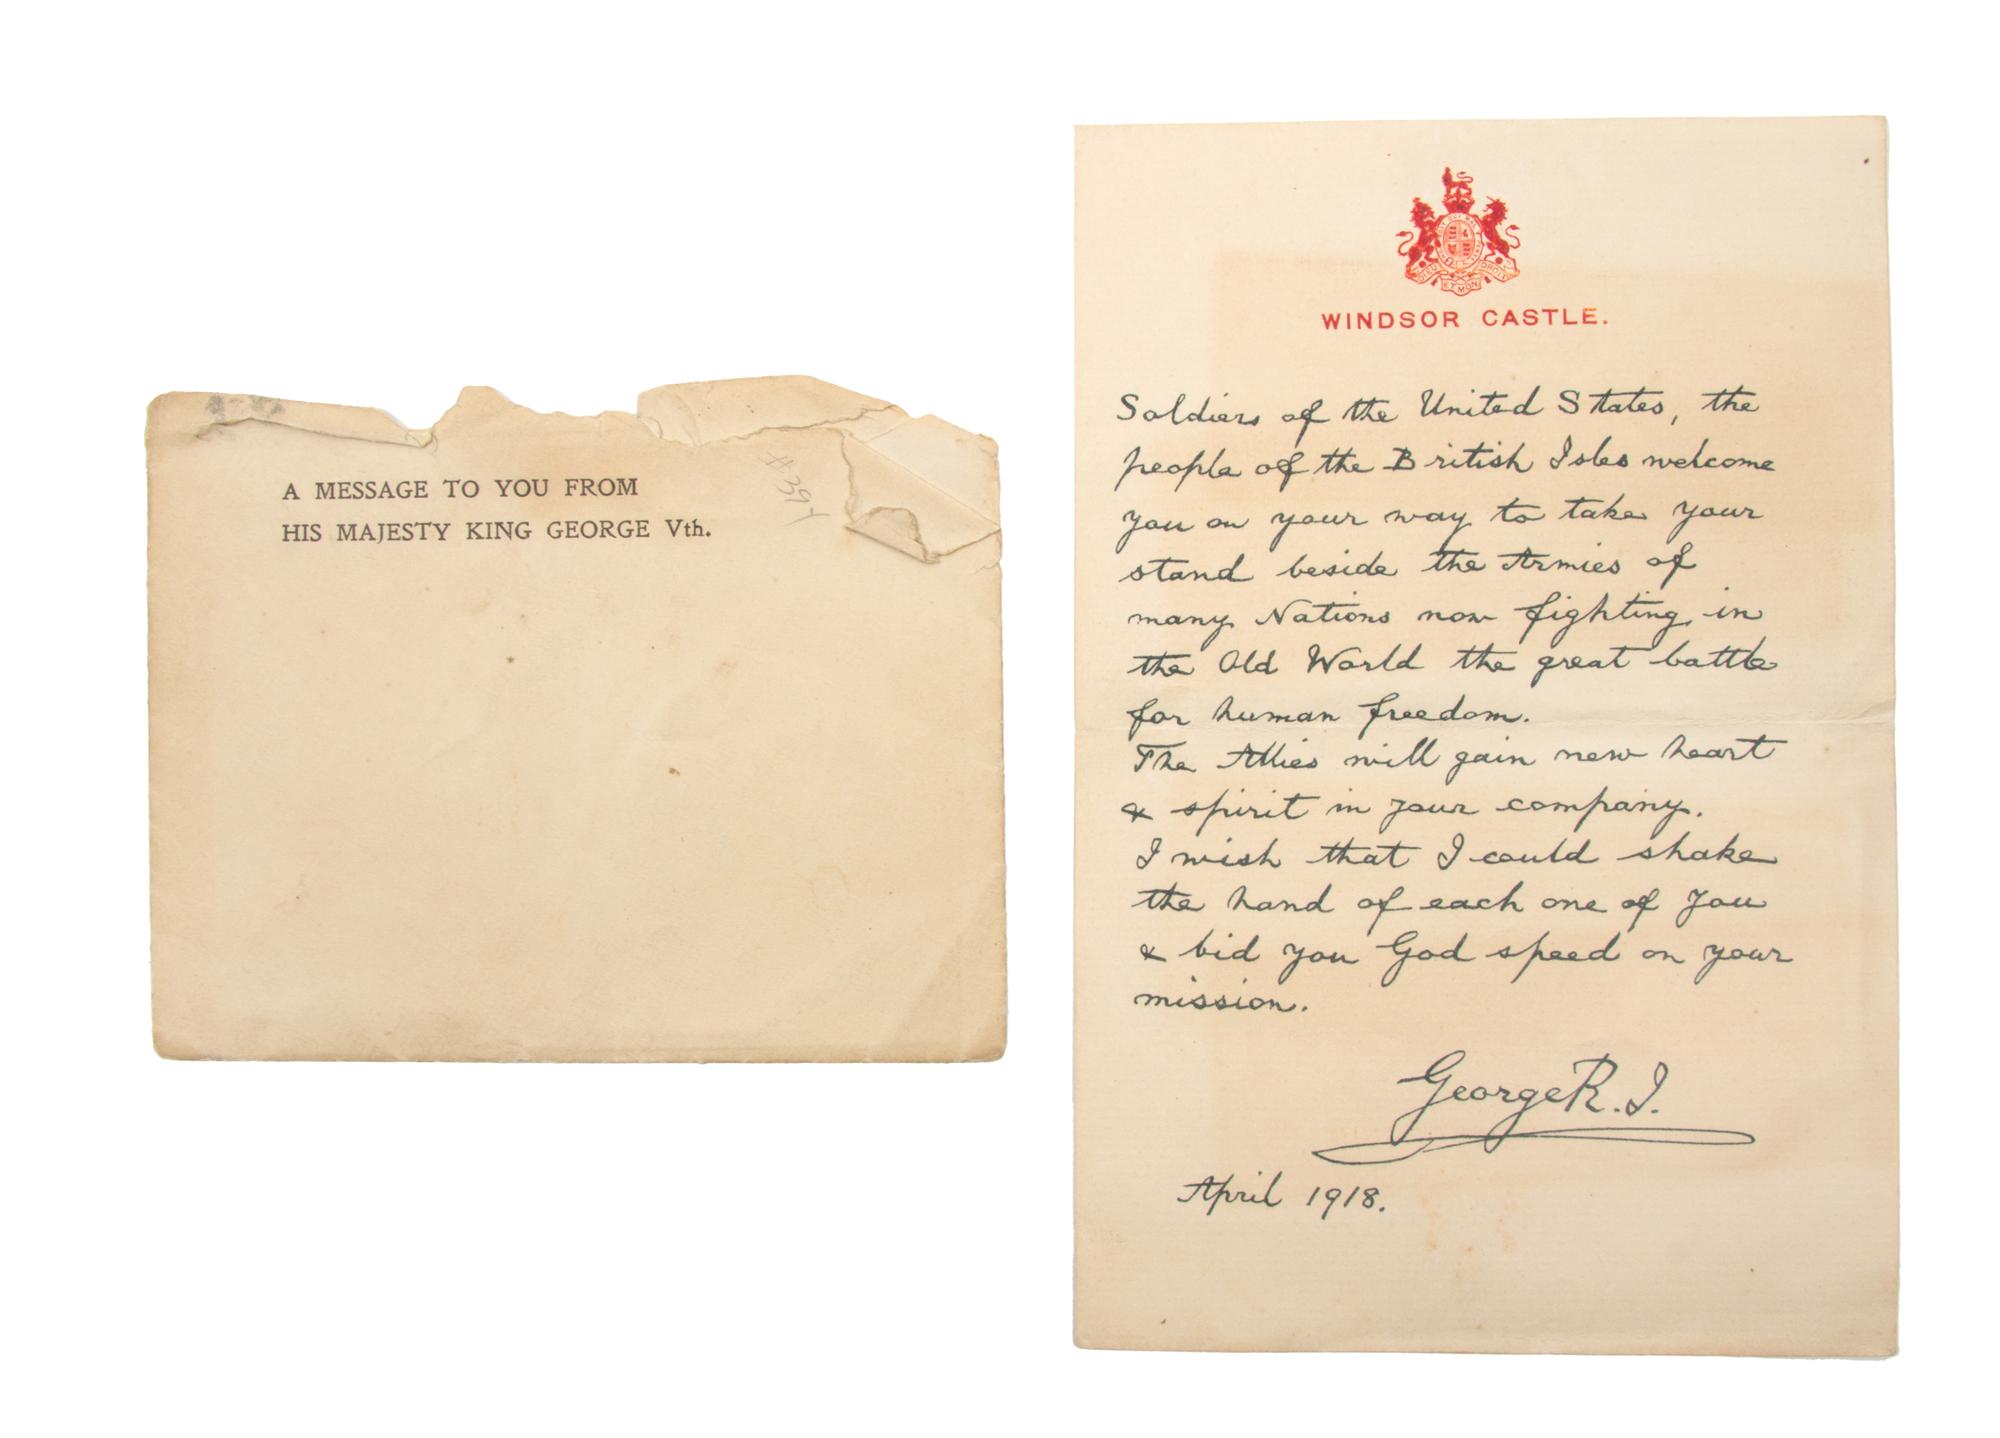 A MESSAGE TO YOU FROM
HIS MAJESTY KING GEORGE Vth.
DIEU ET MON DROIT
WINDSOR CASTLE.
Soldiers of the United States, the
people of the British Isles welcome
you on your way to take your
stand beside the Armies of
many Nations now fighting in
the Old World the great battle
for human freedom.
The Allies will gain new heart
& spirit in your company.
I wish that I could shake
the hand of each one of you
& bid you God speed on your
mission.
George R.I.
April 1918.